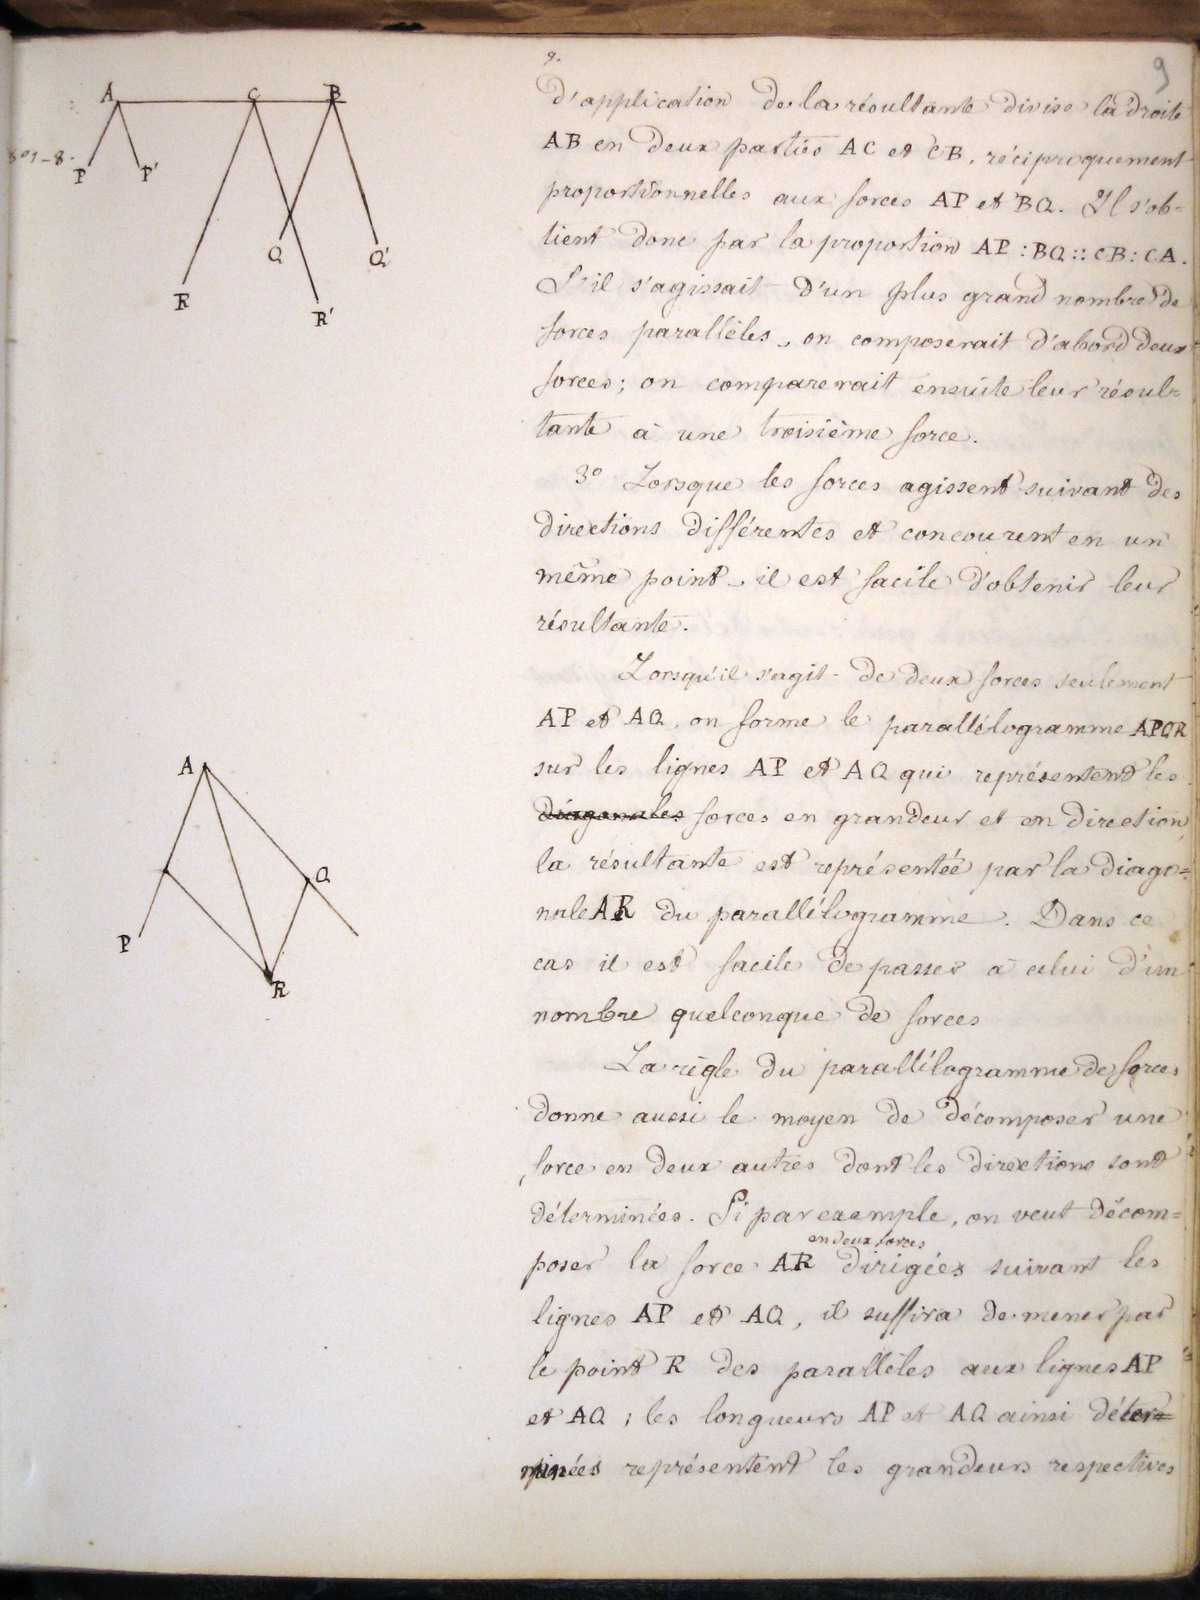 9.
9
A C B
P P' Q Q'
R R'
d'application de la résultante divise la droite
AB en deux parties AC et CB, réciproquement
proportionnelles aux forces AP et BQ. Il s'ob=
tient donc par la proportion AP : BQ :: CB : CA.
S'il s'agissait d'un plus grand nombre de
forces parallèles, on composerait d'abord deux
forces; on comparerait ensuite leur résul=
tante à une troisième force.
3° Lorsque les forces agissent suivant des
directions différentes et concourent en un
même point, il est facile d'obtenir leur
résultante.
Lorsqu'il s'agit de deux forces seulement
AP et AQ, on forme le parallélogramme APQR
sur les lignes AP et AQ qui représentent les
diagonales forces en grandeur et en direction,
la résultante est représentée par la diago=
nale AR du parallélogramme. Dans ce
cas il est facile de passer à celui d'un
nombre quelconque de forces
La règle du parallélogramme de forces
donne aussi le moyen de décomposer une
force en deux autres dont les directions sont
déterminées. Si par exemple, on veut décom=
en deux forces
poser la force AR dirigées suivant les
lignes AP et AQ, il suffira de mener par
le point R des parallèles aux lignes AP
et AQ ; les longueurs AP et AQ ainsi déter=
minées représentent les grandeurs respectives
A
Q
P
R